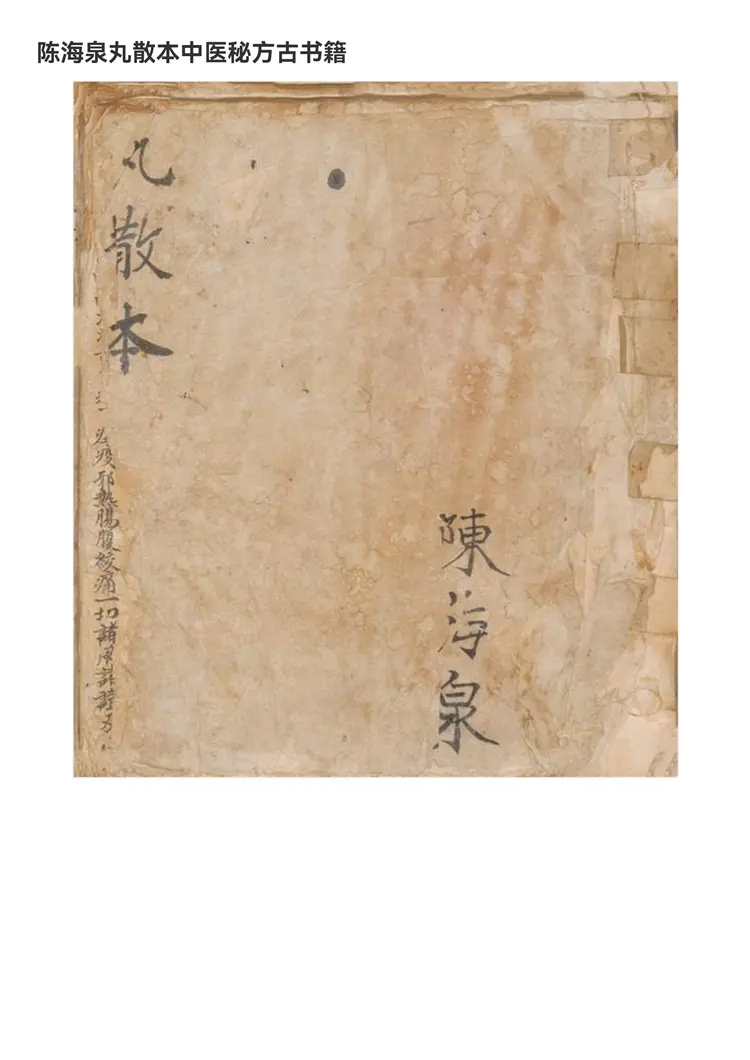 陈海泉丸散本中医秘方古书籍
丸散本
疫邪熱腸腹絞痛一切諸風
陳海泉